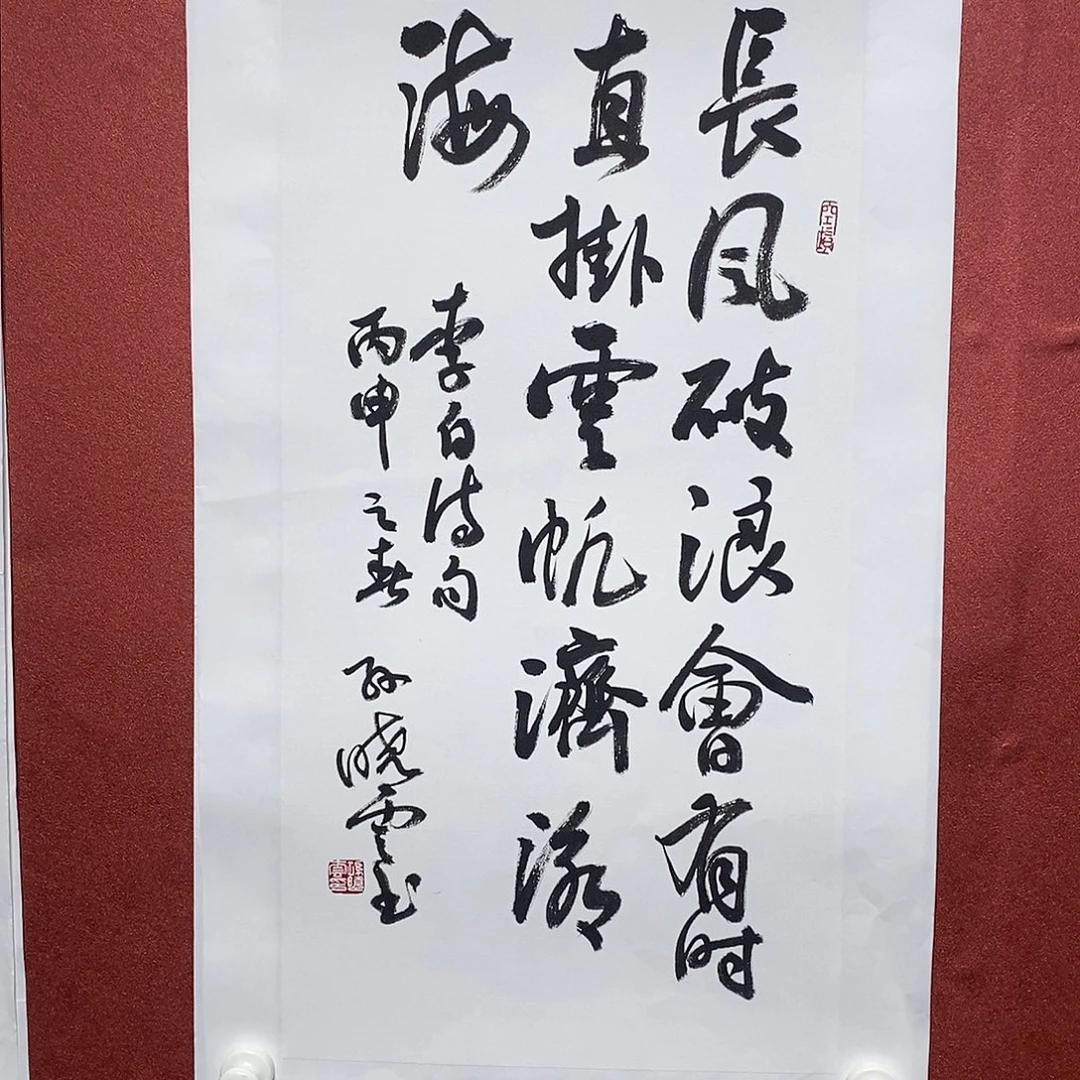 長風破浪會有时
直掛雲帆濟滄
海
李白诗句
丙申之春 孙晓雲书